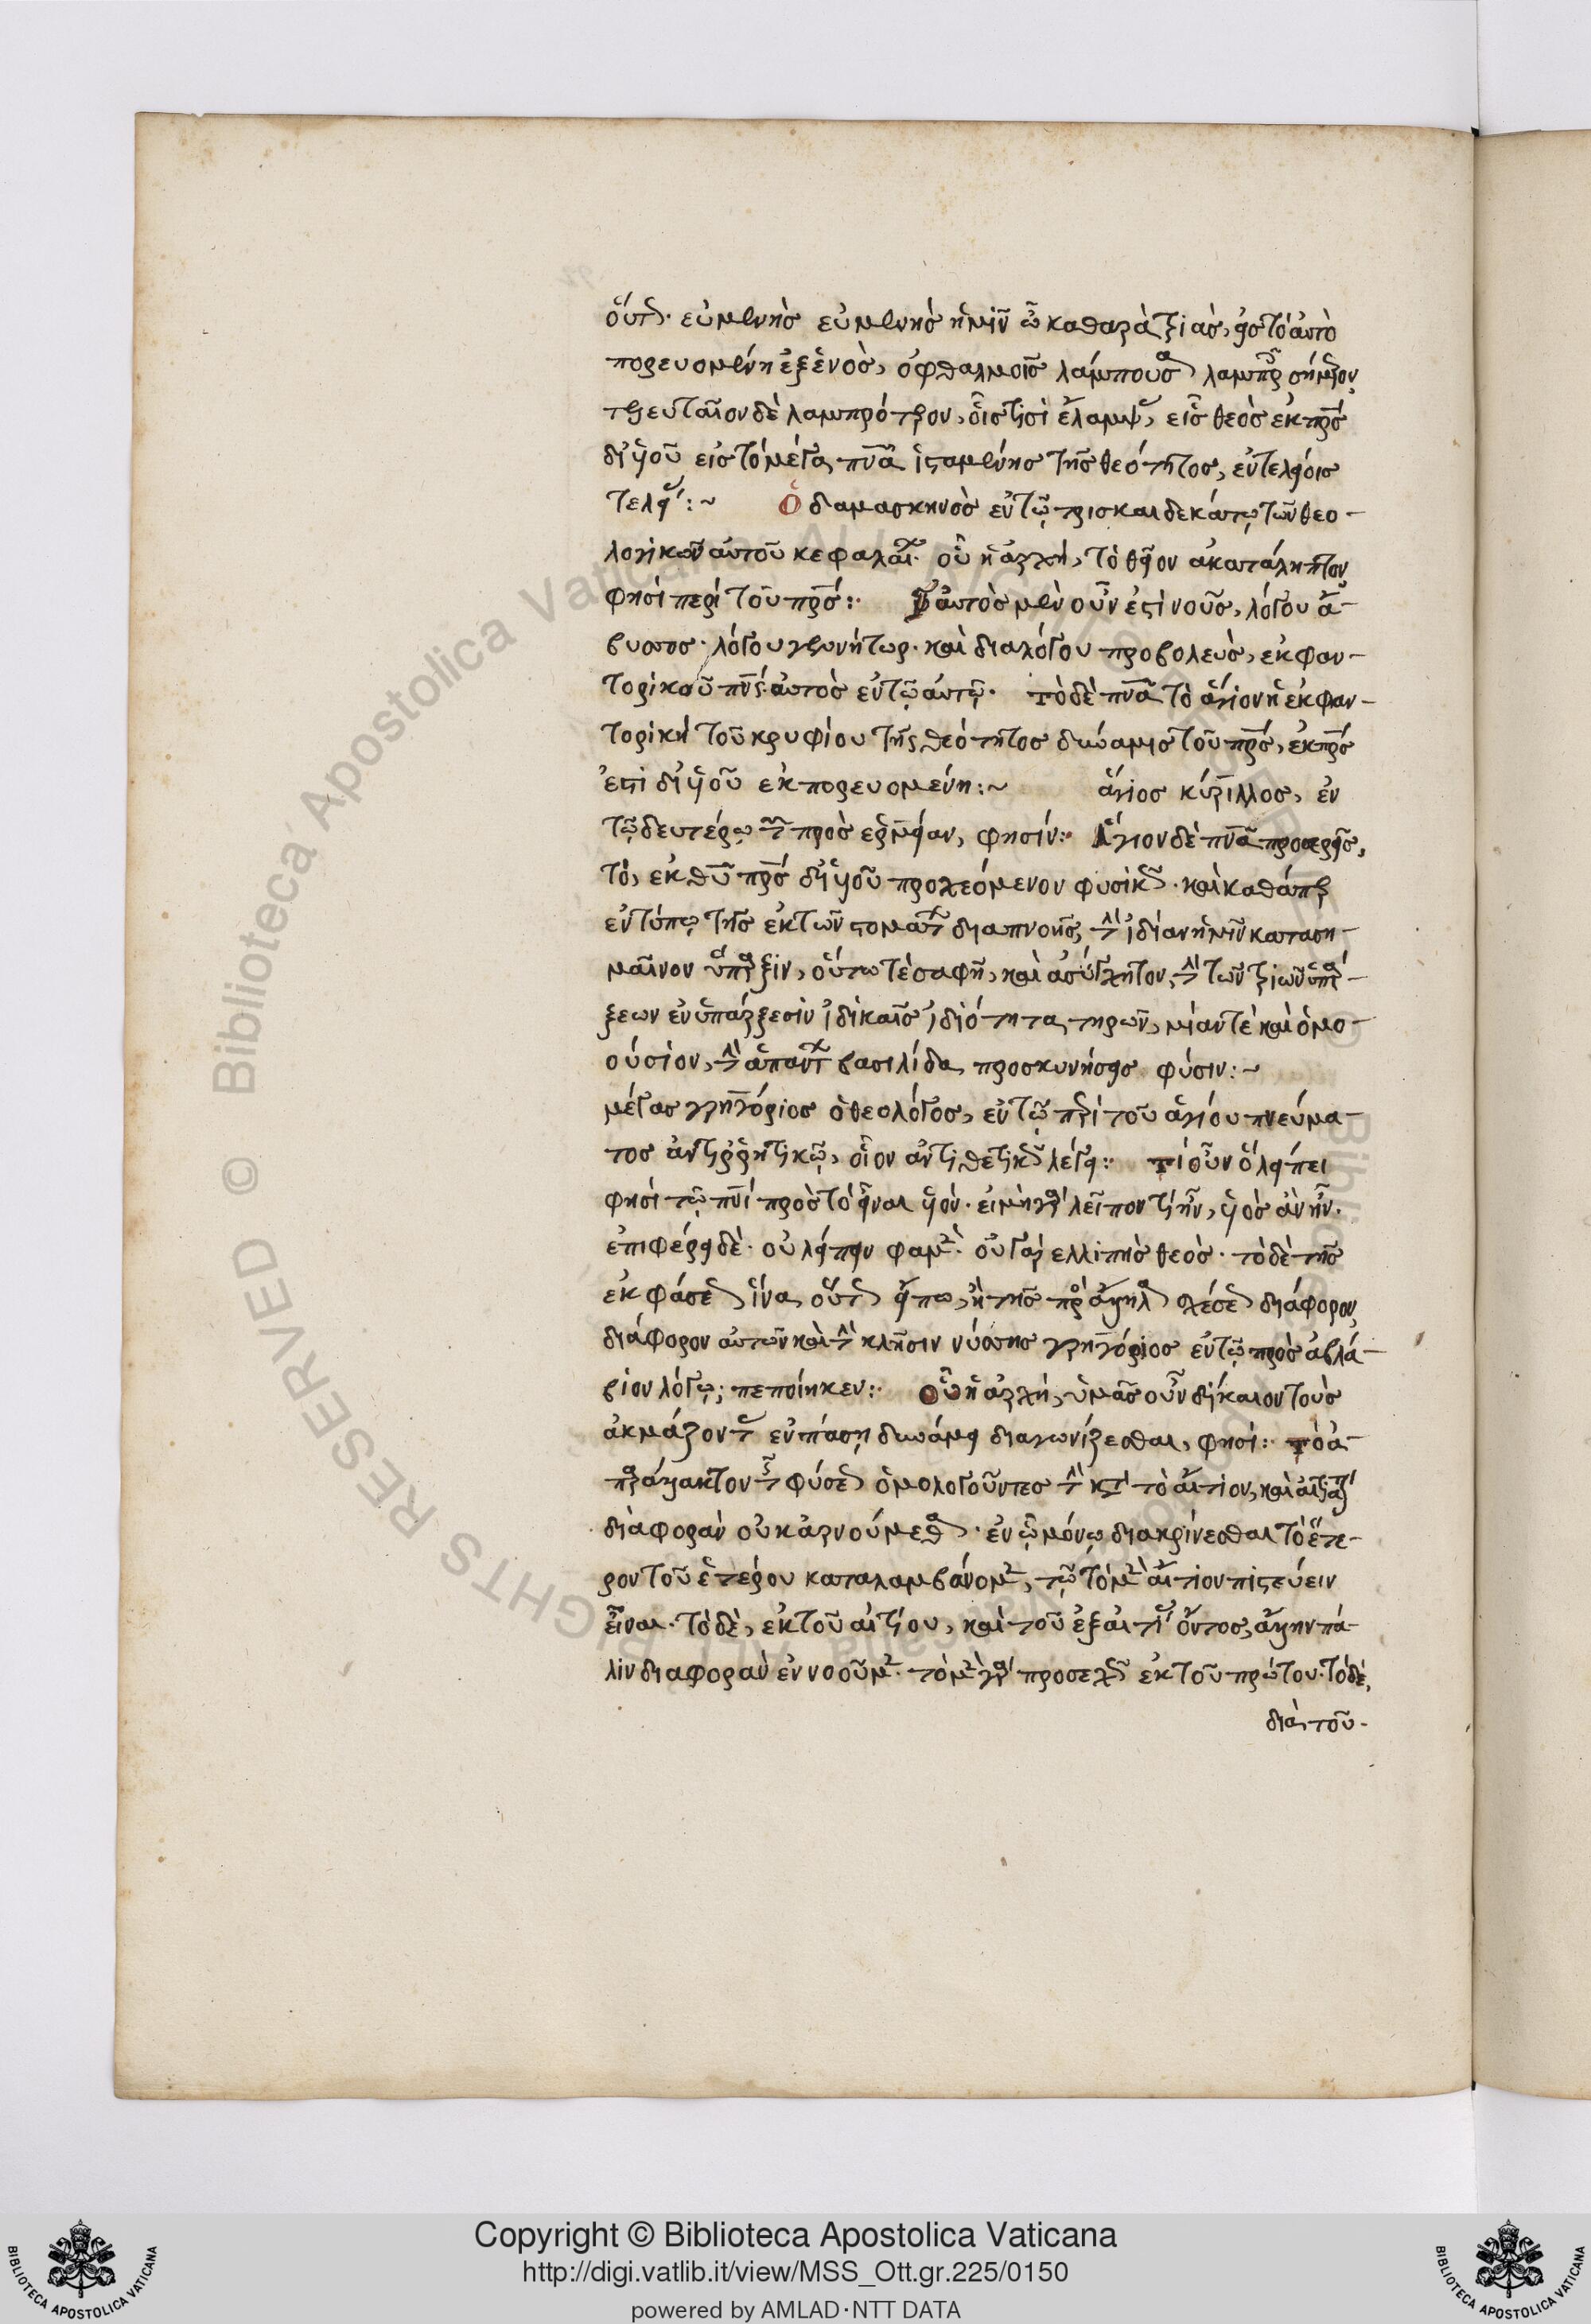 οὕτως· εὐμενὴς εὐμενὴς ἡμῖν ὦ καθαρὰ τριὰς, εἰς τὸ αὐτὸ
πορευομένη ἐξ ἑνὸς, ὀφθαλμοῖς λάμπουσα λαμπρὸν σήμερον
τελευταῖον δὲ λαμπρότερον, οἷς τισὶ ἔλαμψεν, εἷς θεὸς ἐκ πρς
δι' υἱοῦ εἰς τὸ μέγα πνα ἱσταμένης τῆς θεότητος, ἐν τελείοις
τελεί:~ Ὁ δαμασκηνὸς ἐν τῷ τρισκαιδεκάτῳ τῶν θεο-
λογικῶν αὐτοῦ κεφαλαίων· οὗ ἡ ἀρχή, τὸ θεῖον ἀκατάληπτον
φησὶ περὶ τοῦ πρς: αὐτὸς μὲν οὖν ἐστὶ νοῦς, λόγου ἄ-
βυσσος· λόγου γεννήτωρ· καὶ διὰ λόγου προβολεὺς, ἐκφαν-
τορικοῦ πνς· αὐτὸς ἐν τῷ αὐτῷ· τὸ δὲ πνα τὸ ἅγιον ἡ ἐκφαν-
τορικὴ τοῦ κρυφίου τῆς θεότητος δύναμις τοῦ πρς, ἐκ πρς
ἐστὶ δι' υἱοῦ ἐκπορευομένη:~ ἅγιος κύριλλος, ἐν
τῷ δευτέρῳ τῶν πρὸς ἑρμείαν, φησίν: Ἅγιον δὲ πνα προσερεῖς,
τὸ, ἐκ θυ πρς δι' υἱοῦ προχεόμενον φυσικῶς· καὶ καθάπερ
ἐν τύπῳ τῆς ἐκ τῶν στομάτων διαπνοῆς, τὴν ἰδίαν ἡμῖν καταση-
μαῖνον ὕπαρξιν, οὕτω τὲ σαφῆ, καὶ ἀσύγχητον, τὴν τῶν τριῶν ὑπάρ-
ξεων ἐν ὑπάρξεσιν ἰδικαῖς ἰδιότητα τηρῶν, μίαν τὲ καὶ ὁμο-
ούσιον, τὴν ἁπάντων βασιλίδα προσκυνήσεις φύσιν:~
μέγας γρηγόριος ὁ θεολόγος, ἐν τῷ περὶ τοῦ ἁγίου πνεύμα-
τος ἀντιῤῥητικῷ, οἷον ἀντιθετικῶς λέγει: τί οὖν ὃ λείπει
φησὶ τῷ πνι πρὸς τὸ εἶναι υἱόν· εἰ μὴ γὰρ λεῖπον τί ἦν, υἱὸς ἂν ἦν·
ἐπιφέρει δὲ· οὐ λείπειν φαμέν· οὐ γὰρ ἐλλιπὴς θεὸς· τὸ δὲ τῆς
ἐκφάσεως ἵνα οὕτως εἴπω, ἢ τῆς πρὸς ἄλληλα σχέσεως διάφορον,
διάφορον αὐτῶν καὶ τὴν κλῆσιν νύσσης γρηγόριος ἐν τῷ πρὸς ἀβλά-
βιον λόγῳ; πεποίηκεν: Οὗ ἡ ἀρχὴ, ὑμᾶς οὖν δίκαιον τοὺς
ἀκμάζοντας ἐν πάσῃ δυνάμει διαγωνίζεσθαι, φησί: τὸ ἀ-
παράλλακτον τῆς φύσεως ὁμολογοῦντες τὴν κατὰ τὸ αἴτιον, καὶ αἰτιατὸν
διαφορὰν οὐκ ἀρνούμεθα· ἐν ᾧ μόνῳ διακρίνεσθαι τὸ ἕτε-
ρον τοῦ ἑτέρου καταλαμβάνομεν, τῷ τὸ μὲν αἴτιον πιστεύειν
εἶναι· τὸ δὲ, ἐκ τοῦ αἰτίου, καὶ τοῦ ἐξ αἰτίας ὄντος, ἄλλην πά-
λιν διαφορὰν ἐννοοῦμεν· τὸ μὲν γὰρ προσεχῶς ἐκ τοῦ πρώτου· τὸ δὲ,
διὰ τοῦ·
Copyright © Biblioteca Apostolica Vaticana
http://digi.vatlib.it/view/MSS_Ott.gr.225/0150
powered by AMLAD·NTT DATA